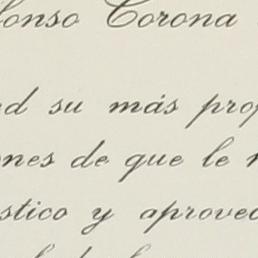 fonso Corona
d su más prop
ones de que le
stico y aprovec